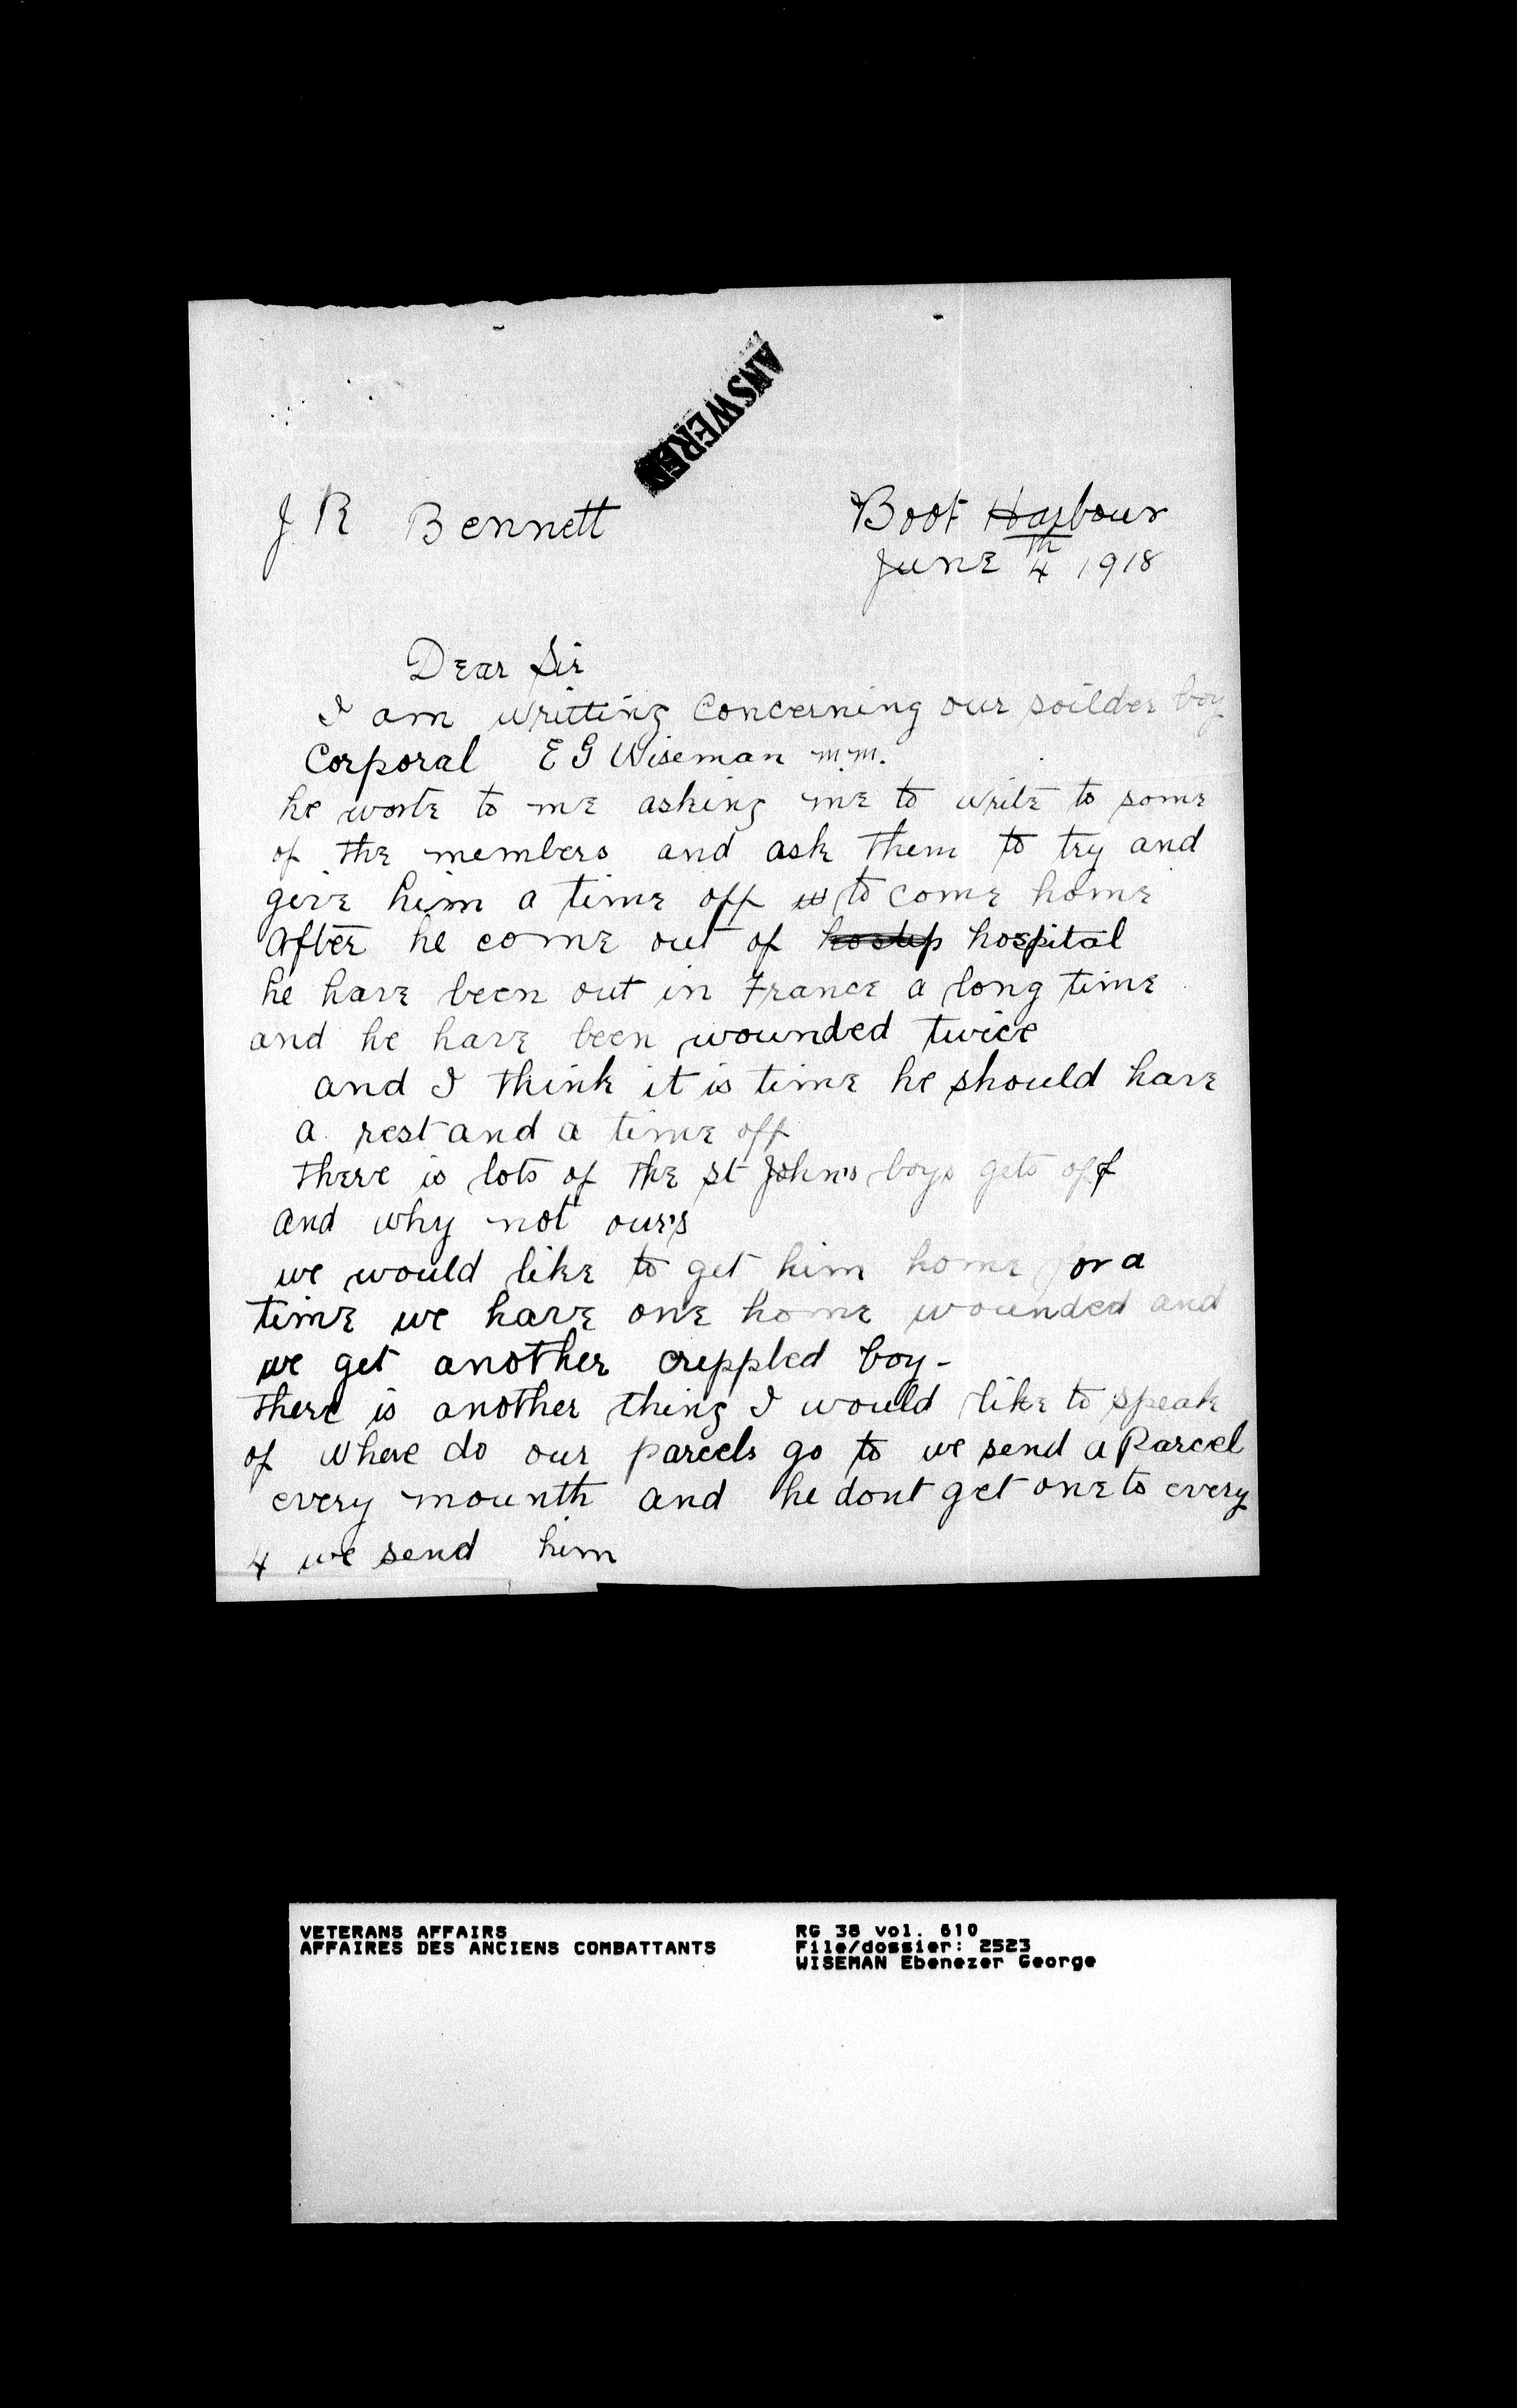 ANSWERED
J R Bennett
Boot Harbour
June 4th 1918
Dear Sir
I am writting Concerning our soilder boy
Corporal E G Wiseman m.m.
he worte to me asking me to write to some
of the members and ask them to try and
give him a time off to come home
After he come out of hospital
he have been out in France a long time
and he have been wounded twice
and I think it is time he should have
a rest and a time off
there is lots of the st John's boys gets off
and why not our's
we would like to get him home for a
time we have one home wounded and
we get another creppled boy-
there is another thing I would like to speak
of where do our parcels go to we send a Parcel
every mounth and he dont get one to every
4 we send him
VETERANS AFFAIRS
AFFAIRES DES ANCIENS COMBATTANTS
RG 38 vol. 610
File/dossier: 2523
WISEMAN Ebenezer George